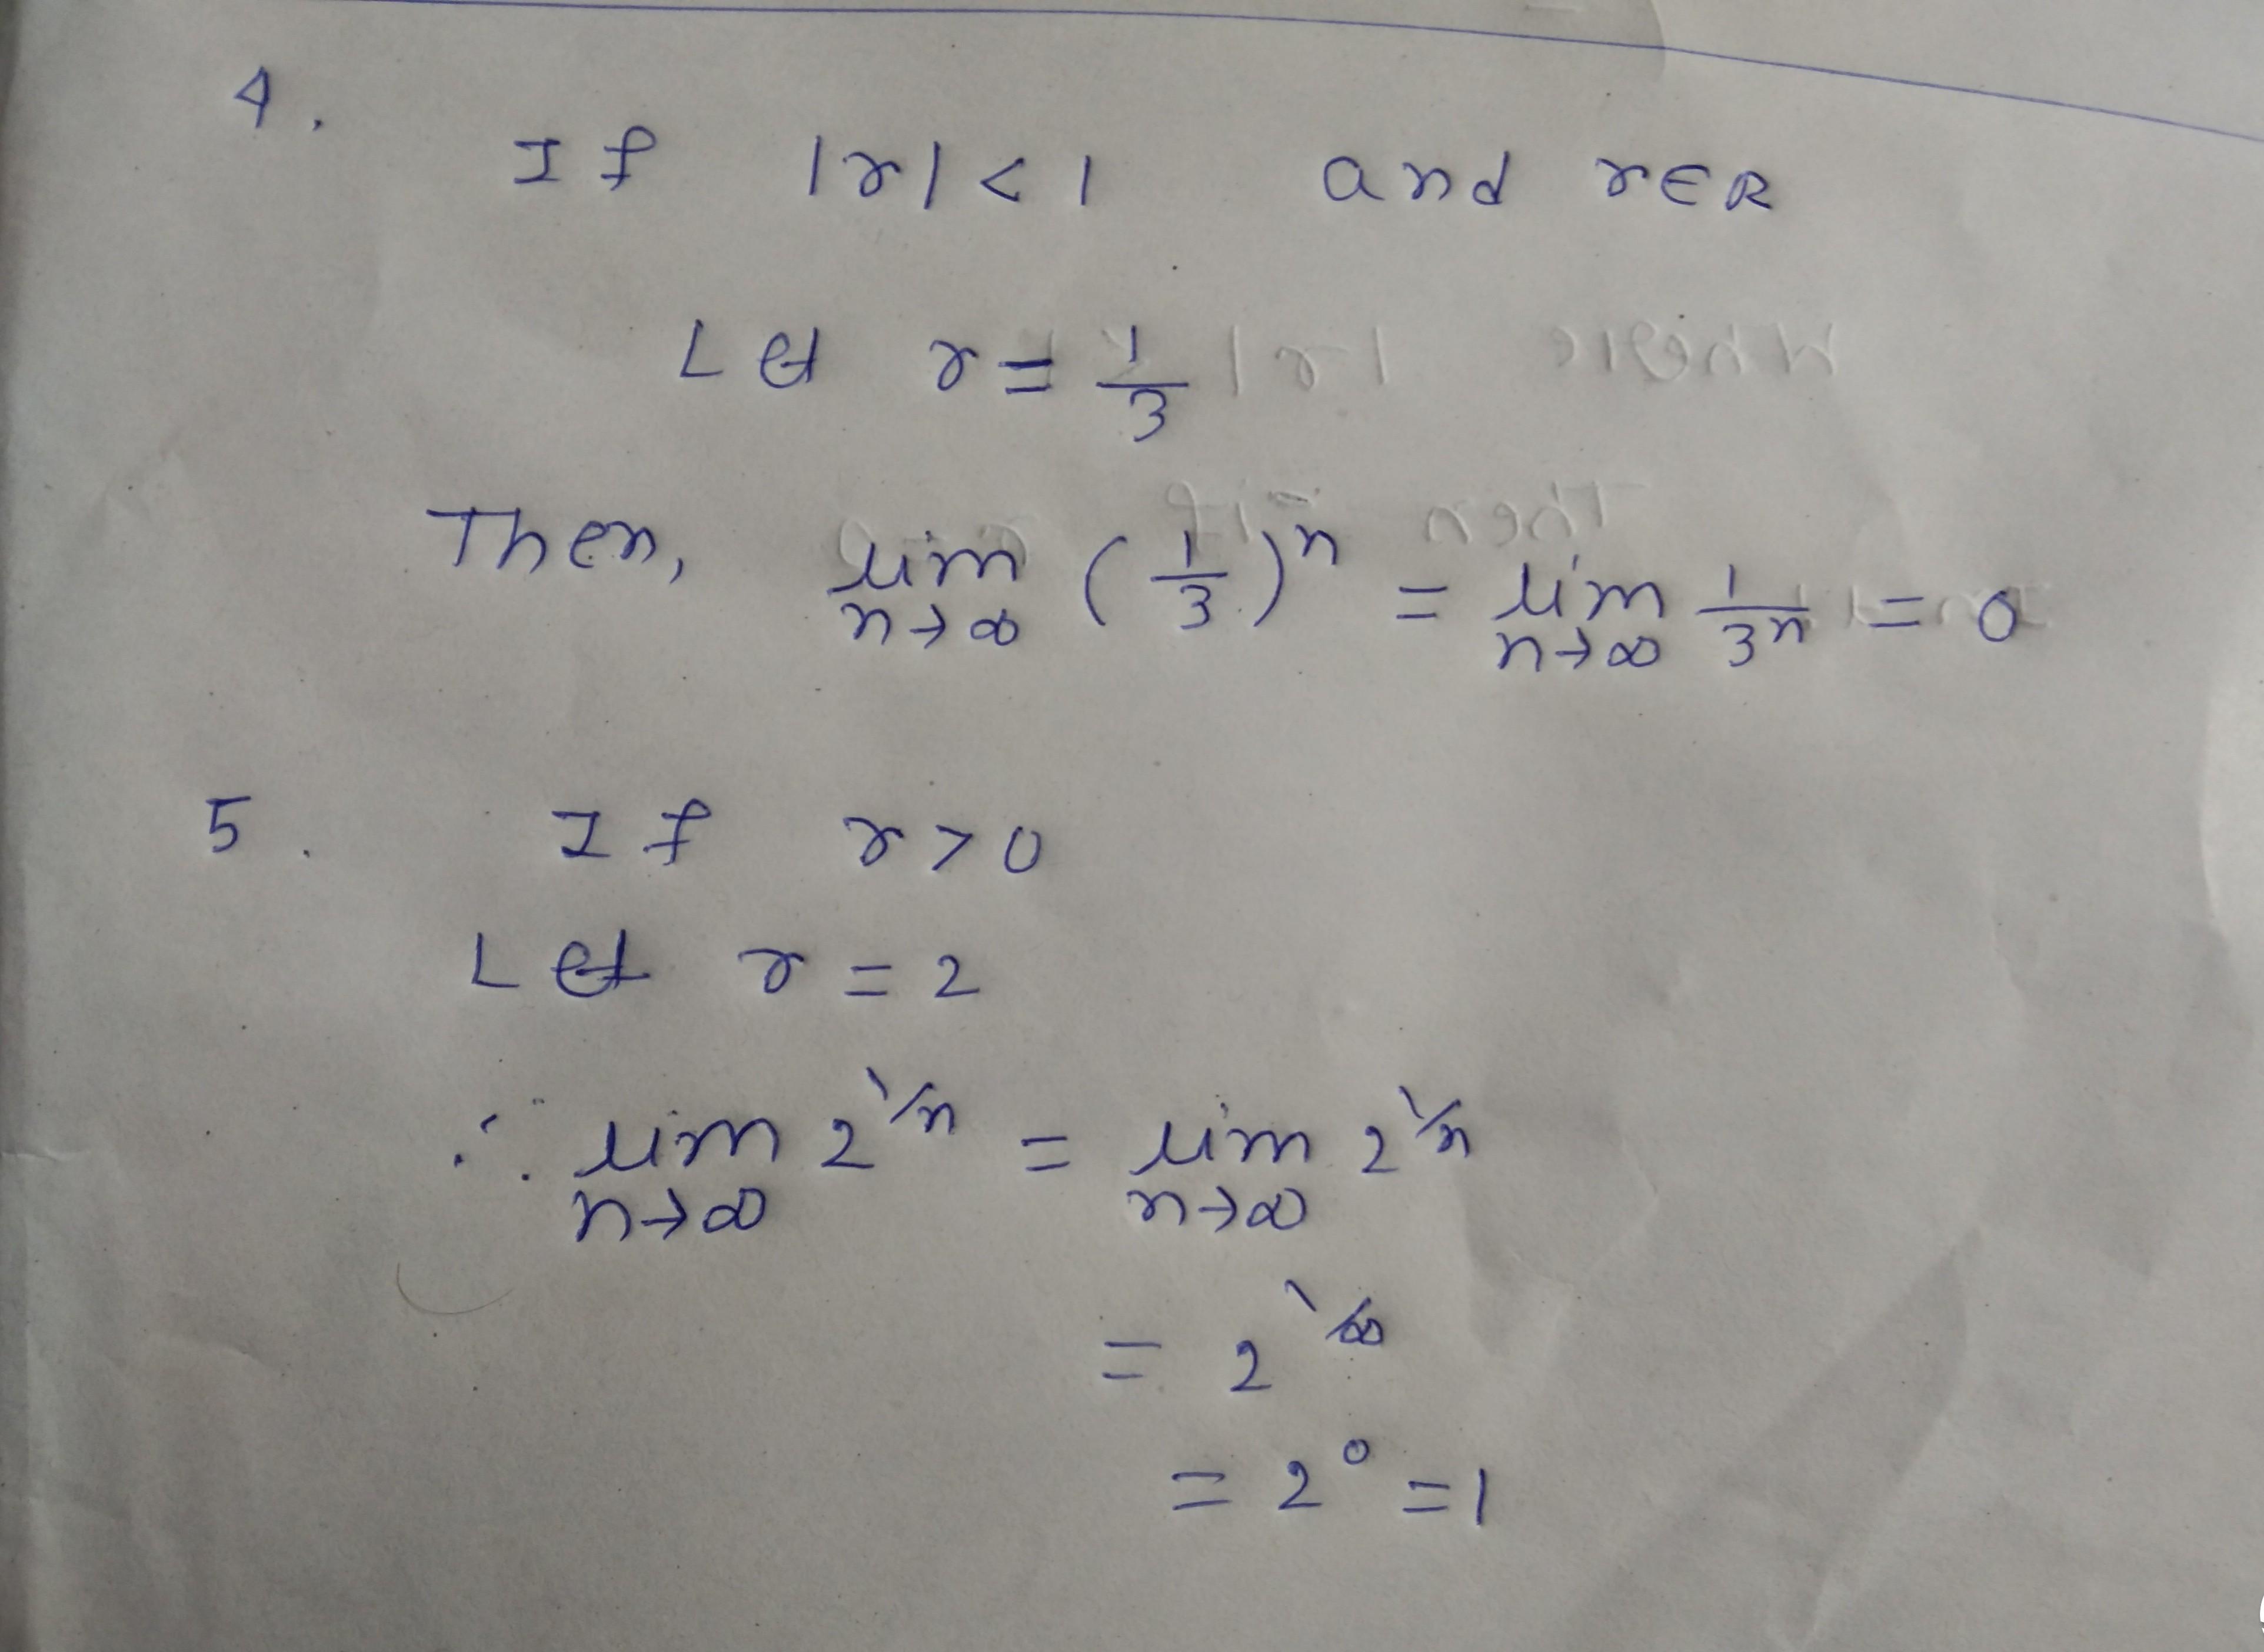 4.
If |r| < 1 and r∈R
Let r = 1/3
Then, lim n→∞ (1/3)^n = lim n→∞ 1/3^n = 0
5. If r > 0
Let r = 2
∴ lim n→∞ 2^1/n = lim n→∞ 2^1/n
= 2^1/∞
= 2^0 = 1